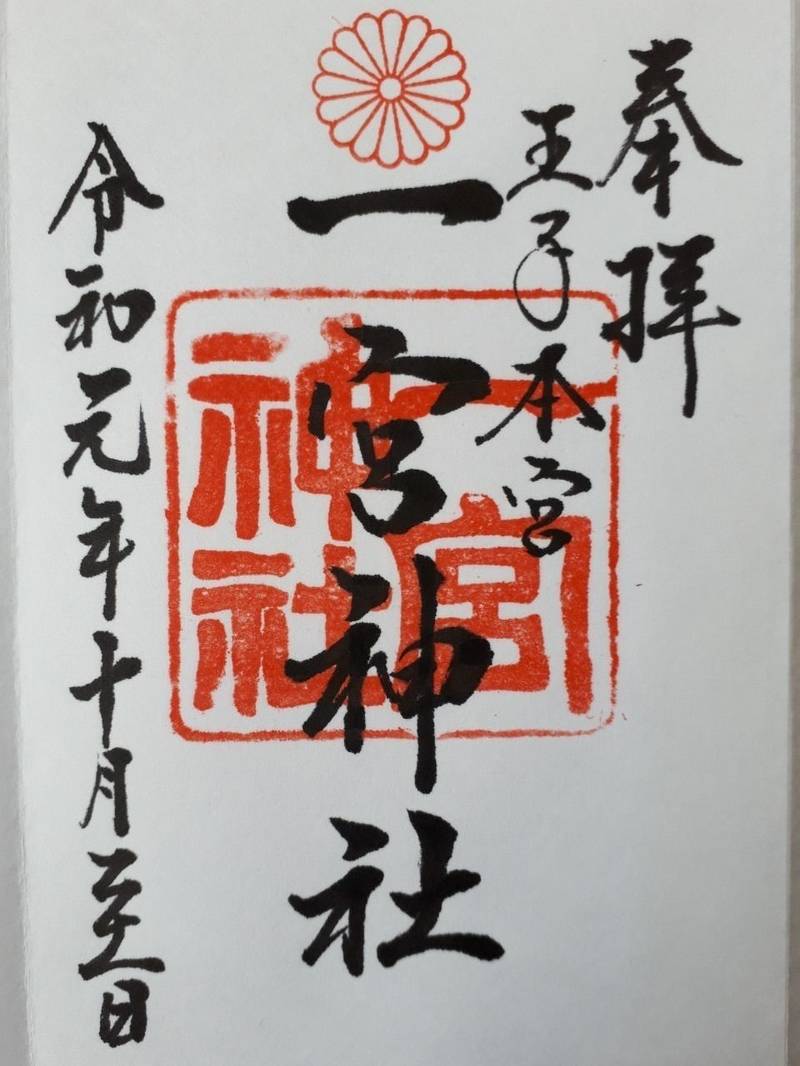 奉拝
王子本宮
一宮神社
一宮
神社
令和元年十月二十一日